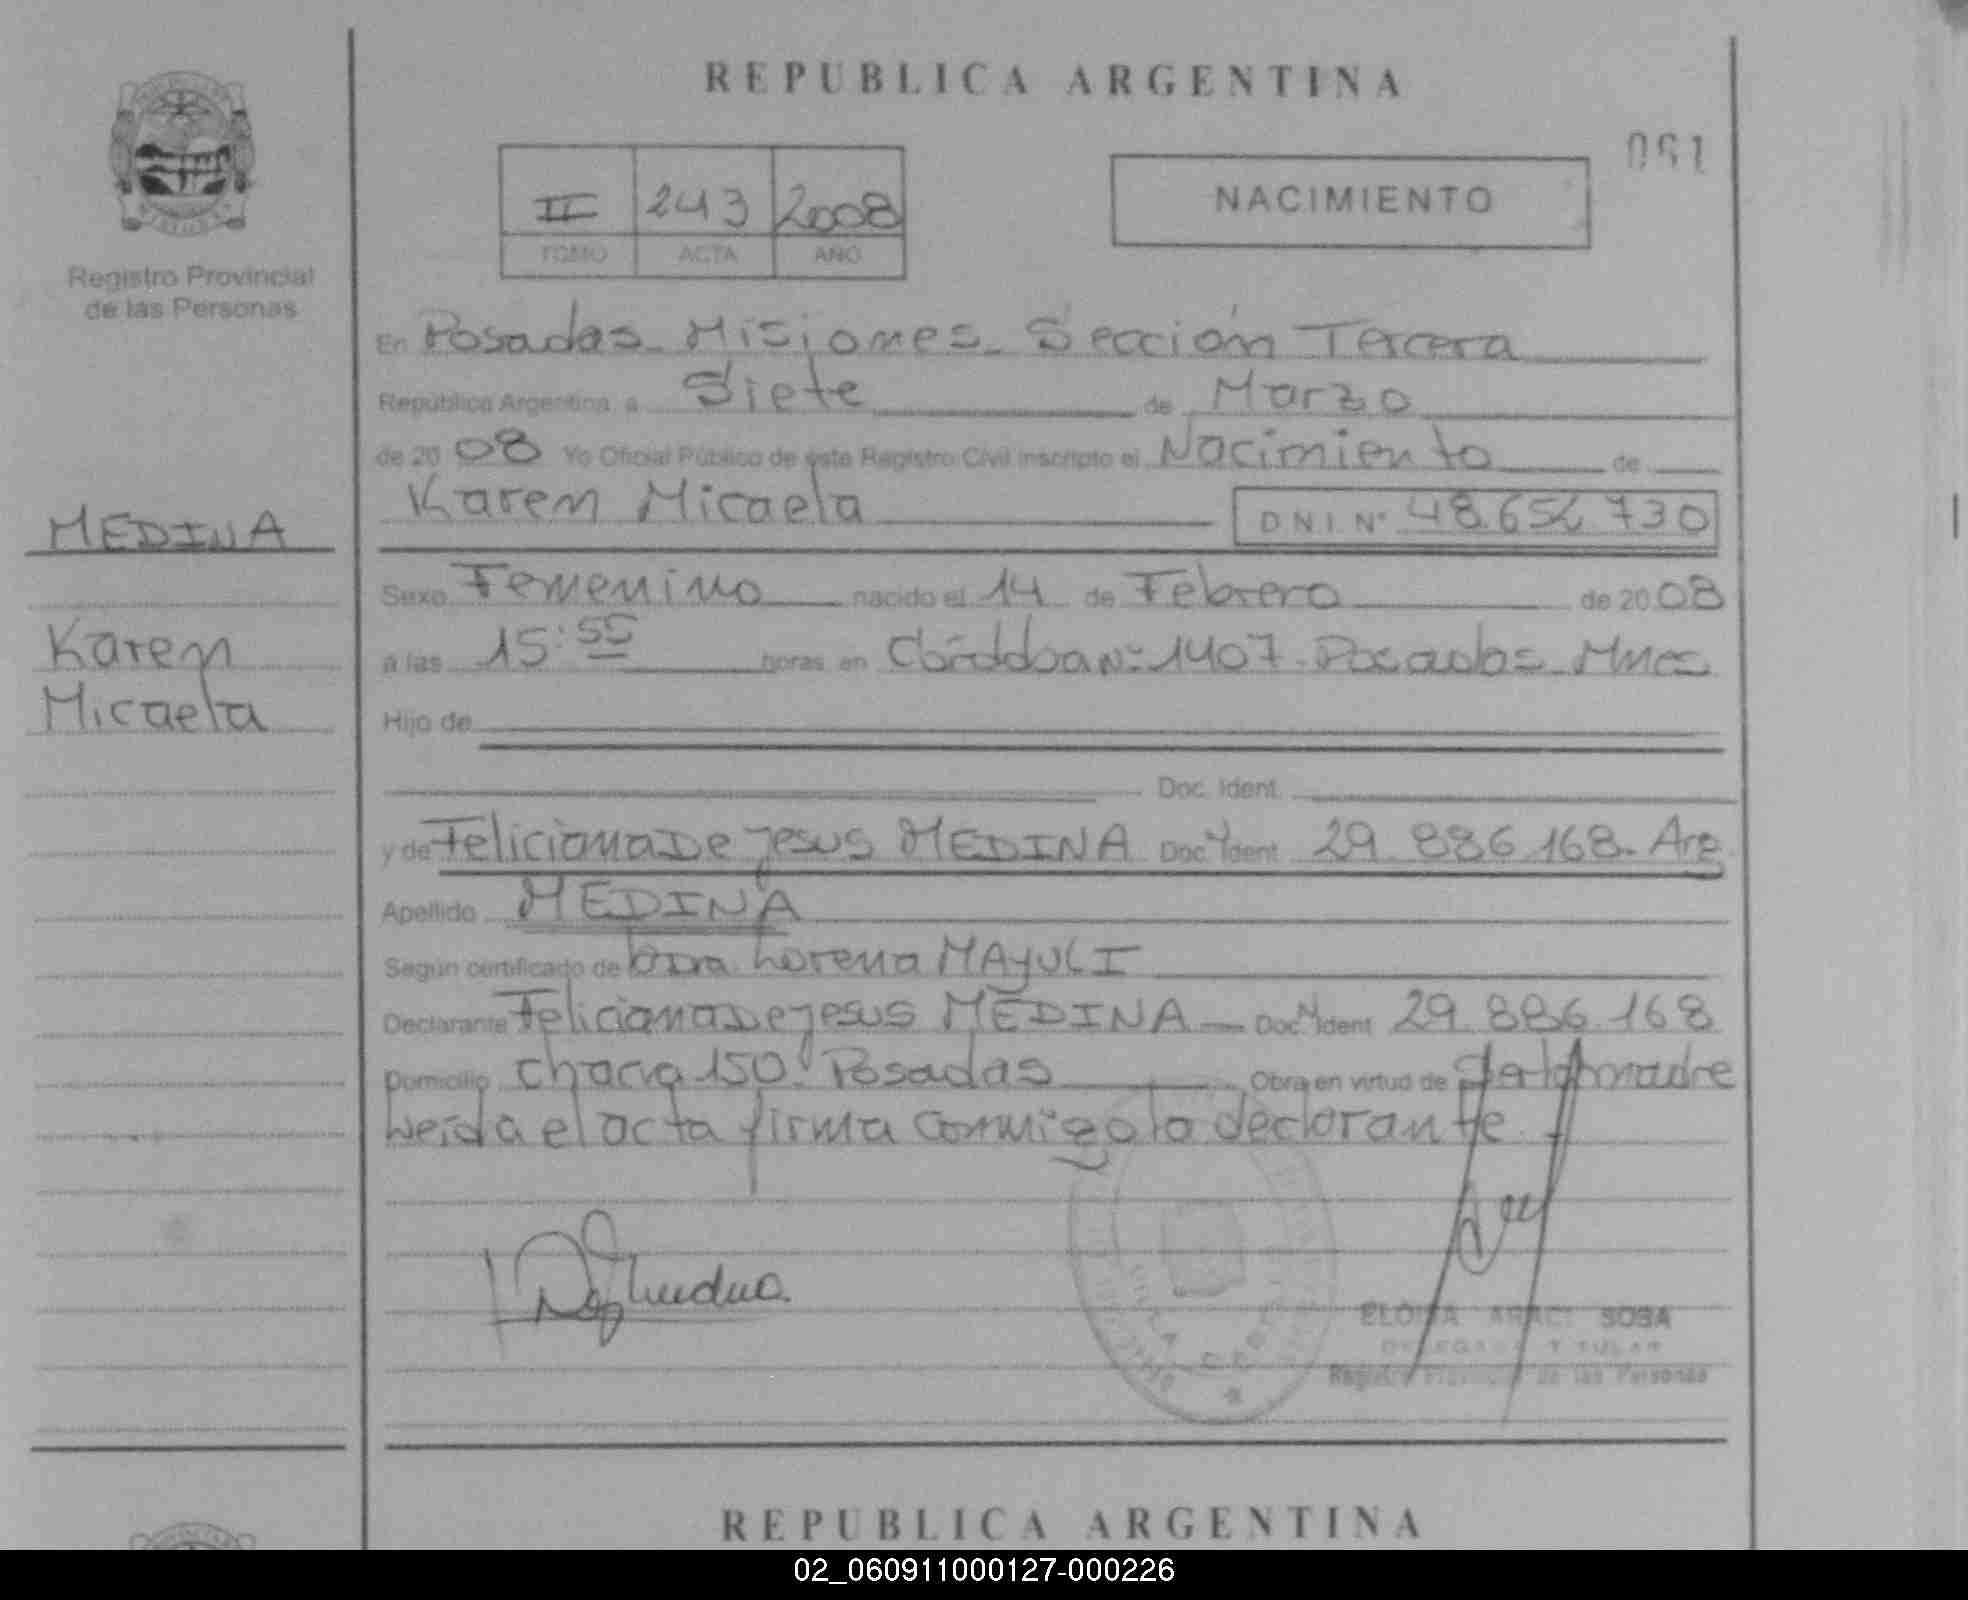 REPUBLICA ARGENTINA
061
II 243 2008
TOMO ACTA AÑO
NACIMIENTO
Registro Provincial
de las Personas
En Posadas Misiones Sección Tercera
República Argentina a Siete de Marzo
de 2008 Yo Oficial Público de este Registro Civil inscripto el Nacimiento de
Karem Micaela D N I. Nº 48.654.730
MEDINA
Karem
Micaela
Sexo Femenino nacido el 14 de Febrero de 2008
a las 15:55 horas en Córddba Nº 1407. Posadas Mnes
Hijo de
Doc. Ident.
y de Feliciana De Jesus MEDINA Doc. Ident 29.886.168. Arg
Apellido MEDINA
Según certificado de Dra. Lorena MAYULI
Declarante Feliciana De Jesus MEDINA Doc. Ident 29.886.168
Domicilio chacra 150. Posadas Obra en virtud de madre
Leída el acta firma conmigo la declarante
ELOISA ARACI SOSA
DELEGADA TITULAR
Registro Provincial de las Personas
REPUBLICA ARGENTINA
02_060911000127-000226